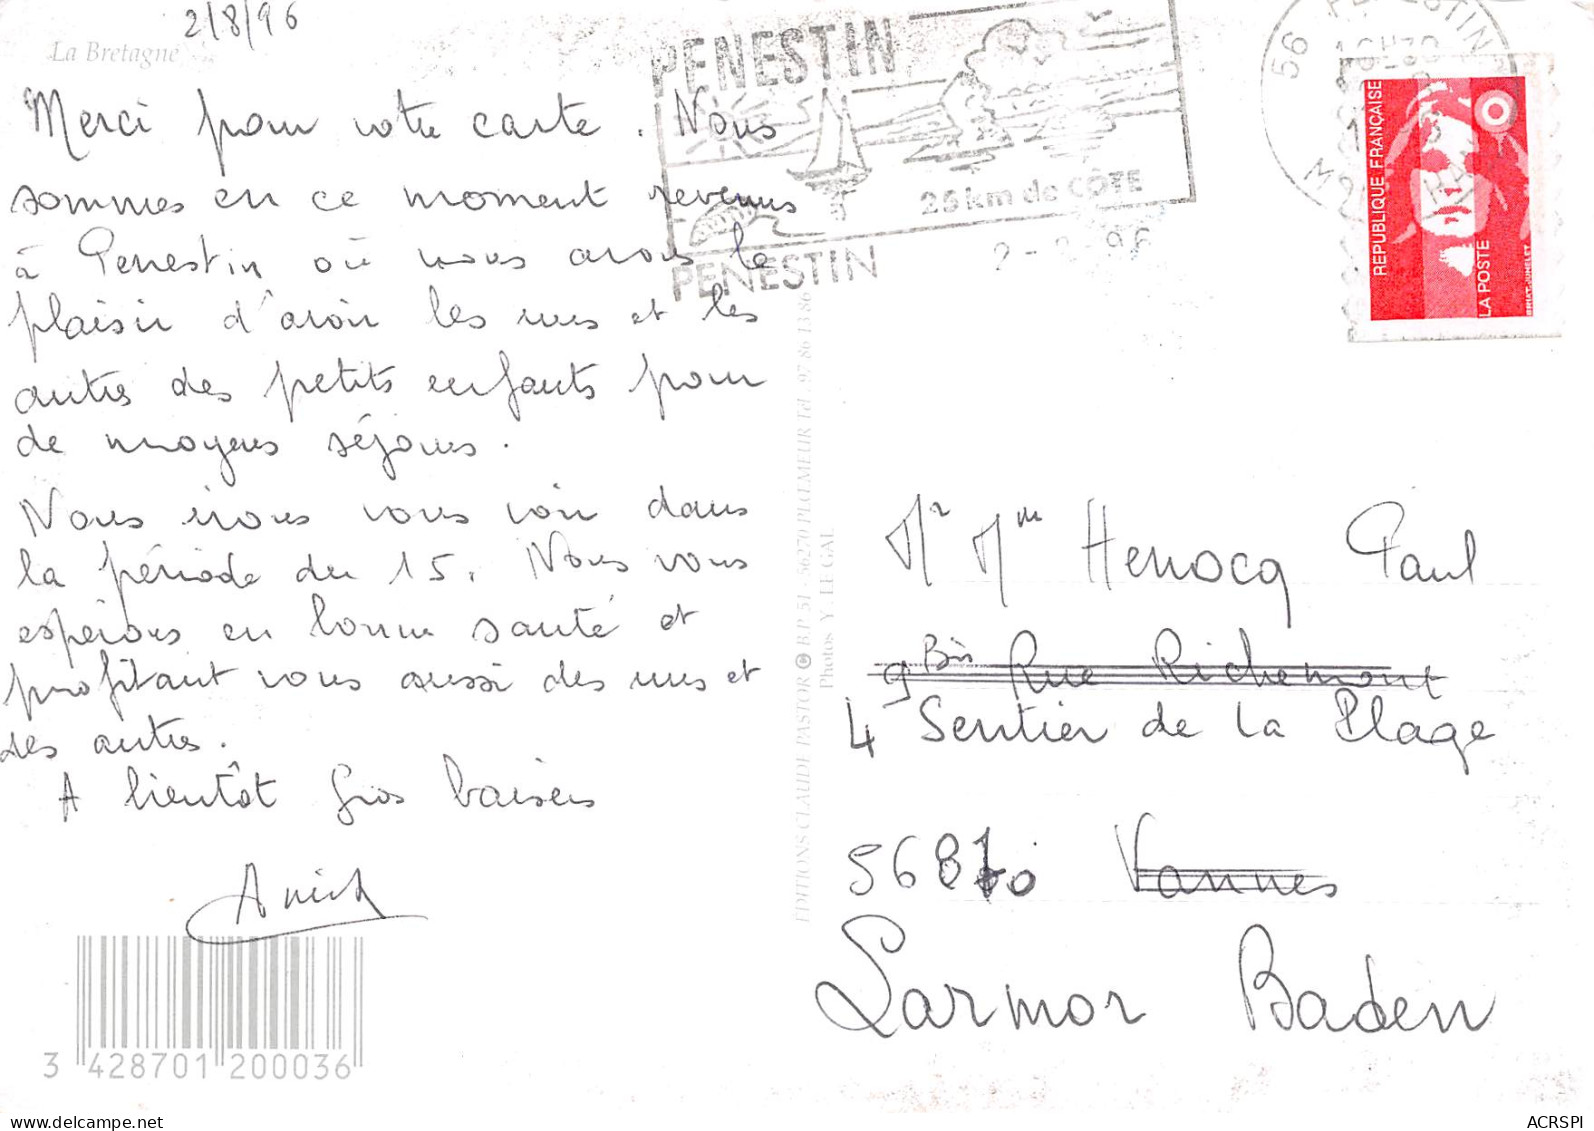 2/8/96
La Bretagne
Merci pour votre carte. Nous
sommes en ce moment revenus
à Penestin où nous avons le
plaisir d'avoir les uns et les
autres des petits enfants pour
de moyens séjours.
Nous irons vous voir dans
la période du 15. Nous vous
espérons en bonne santé et
profitant vous aussi des uns et
des autres.
A bientôt Gros baisers
3 428701 200036
EDITIONS CLAUDE PASTOR © B.P. 51 - 56270 PLOEMEUR Tél. 97 86 13 86
Photos Y. LE GAL
PENESTIN
25 km de CÔTE
PENESTIN
56 PENESTIN
REPUBLIQUE FRANÇAISE
LA POSTE
BRIAT-JUMELET
Mr Mme Henocq Paul
9 Bis Rue Richemont
4 Sentier de la Plage
Vannes
Larmor Baden
ACRSPI